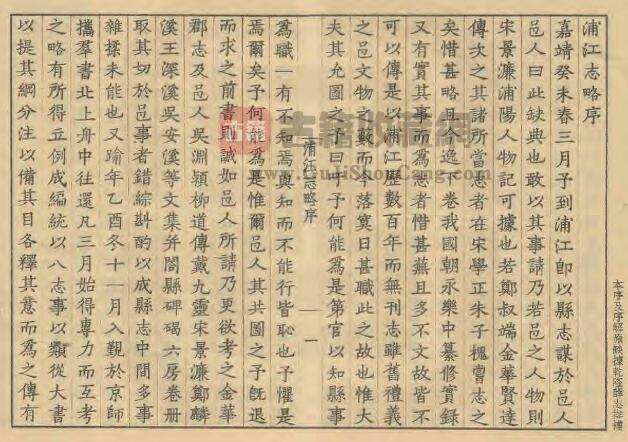 浦江志略序
嘉靖癸未春三月予到浦江卽以縣志謀於邑人
邑人曰此缺典也敢以其事請乃若邑之人物則
宋景濂浦陽人物記可據也若鄭叔端金華賢達
傳次之其諸所當志者在宋學正朱子槐嘗志之
矣惜甚略且今逸下卷我國朝永樂中纂修實錄
又有實其事而為志者惜甚蕪且多不文故皆不
可以傳是以浦江歷數百年而無刊志雖舊禮義
之邑文物之藪而今落寞日甚職此之故也惟大
夫其允圖之予曰吁予何能為是第官以知縣事
浦江志略序
一
為職一有不知焉與知而不能行皆恥也予懼是
焉爾矣予何能為是惟爾邑人其共圖之予旣退
而求之前書則誠如邑人所請乃更欲考之金華
郡志及邑人吳淵穎柳道傳戴九靈宋景濂鄭麟
溪王深溪吳安溪等文集并閤縣碑碣六房卷冊
取其切於邑事者錯綜斟酌以成縣志中間多事
雜揉未能也又踰年乙酉冬十一月入覲於京師
攜羣書北上舟中往還凡三月始得專力而互考
之略有所得立例成編統以八志事以類從大書
以提其綱分注以備其目各釋其意而為之傳有
本序及序解原缺據乾隆薛志抄補
古籍收藏網
www.GuJiShouCang.com